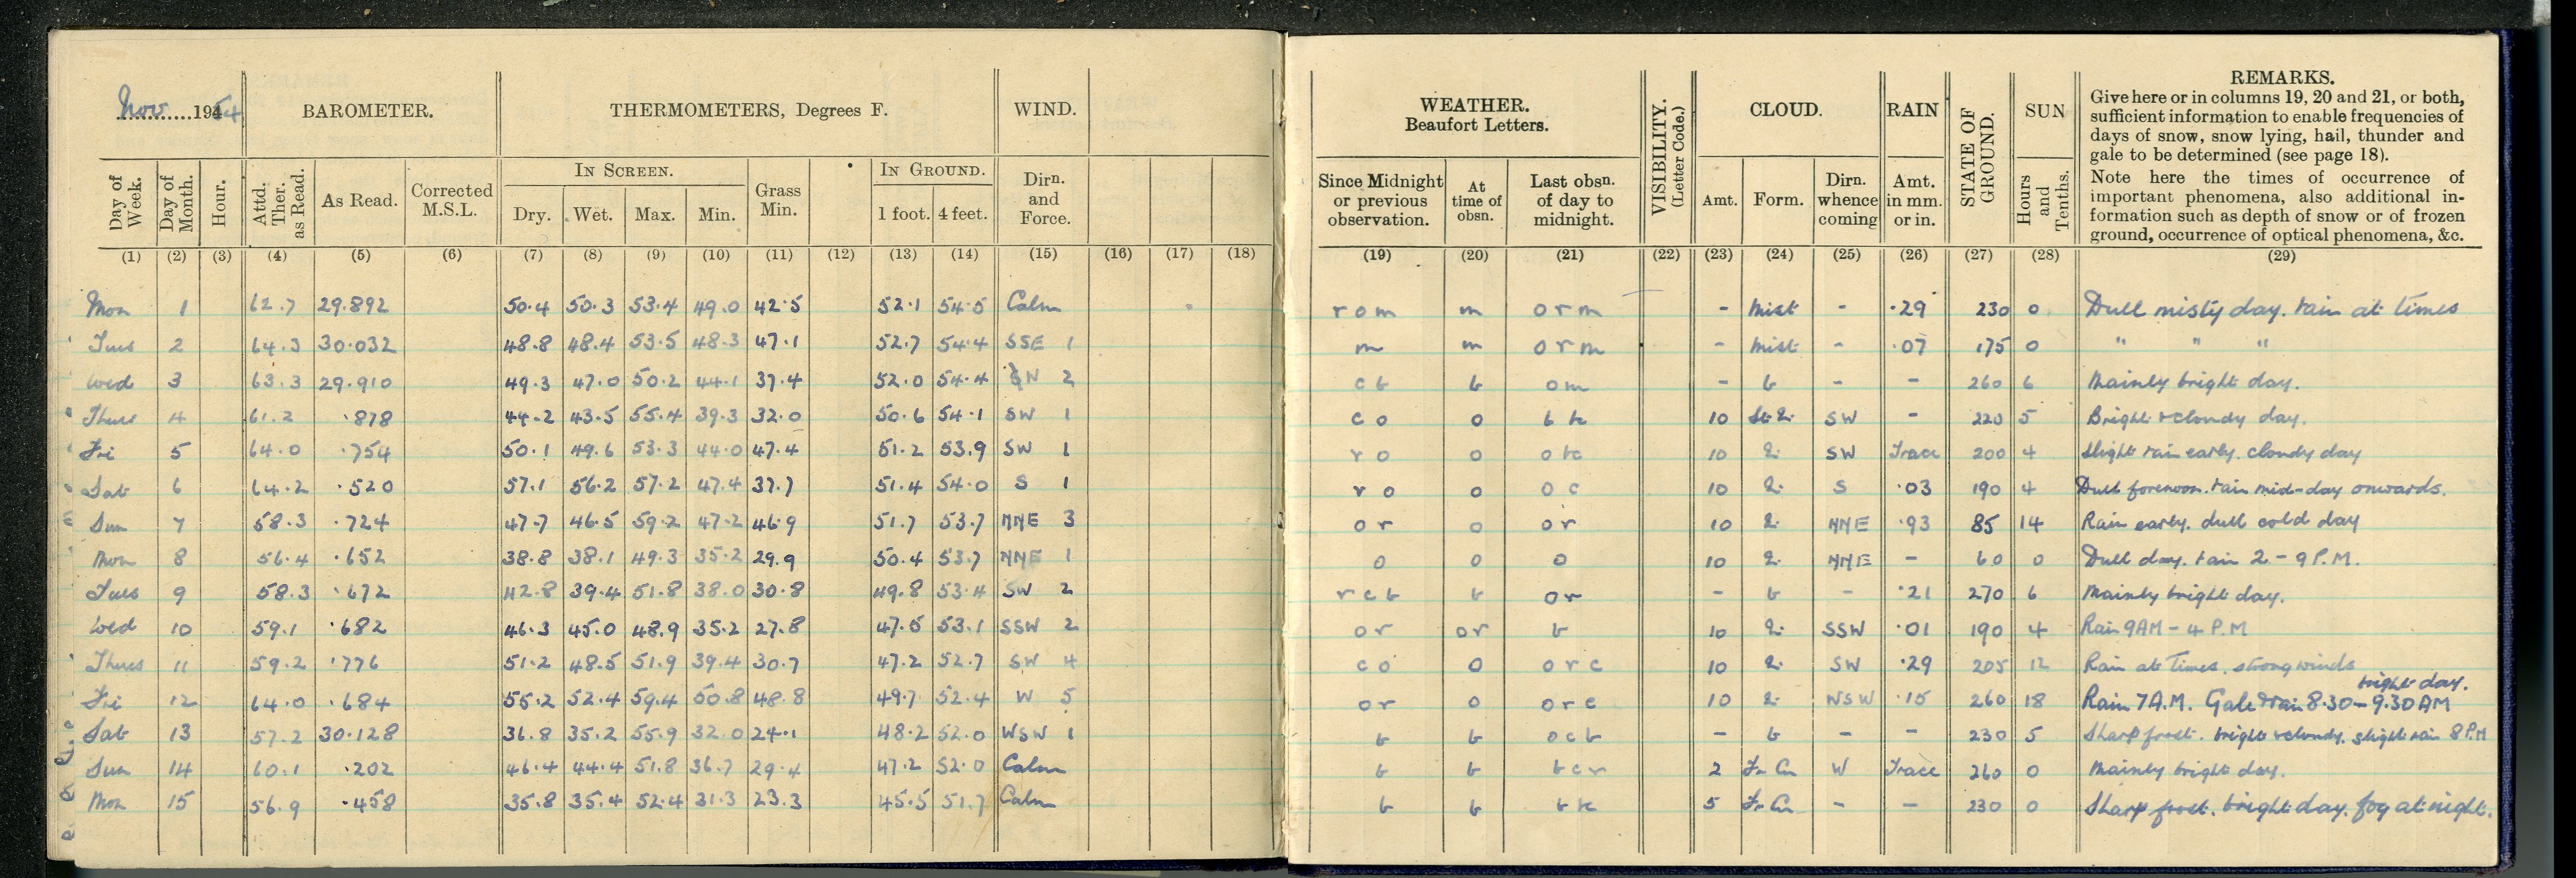 Nov 1954 BAROMETER. THERMOMETERS, Degrees F. WIND. WEATHER. Beaufort Letters. VISIBILITY. (Letter Code.) CLOUD. RAIN STATE OF GROUND. SUN REMARKS.
Give here or in columns 19, 20 and 21, or both,
sufficient information to enable frequencies of
days of snow, snow lying, hail, thunder and
gale to be determined (see page 18).
Note here the times of occurrence of
important phenomena, also additional in-
formation such as depth of snow or of frozen
ground, occurrence of optical phenomena, &c.
IN SCREEN. IN GROUND.
Day of Week. Day of Month. Hour. Attd. Ther. as Read. As Read. Corrected M.S.L. Dry. Wet. Max. Min. Grass Min. 1 foot. 4 feet. Dirn. and Force. Since Midnight or previous observation. At time of obsn. Last obsn. of day to midnight. Amt. Form. Dirn. whence coming Amt. in mm. or in. Hours and Tenths.
(1) (2) (3) (4) (5) (6) (7) (8) (9) (10) (11) (12) (13) (14) (15) (16) (17) (18) (19) (20) (21) (22) (23) (24) (25) (26) (27) (28) (29)
Mon 1 62.7 29.892 50.4 50.3 53.4 49.0 42.5 52.1 54.5 Calm r o m m o r m - Mist - .29 230 0 Dull misty day. rain at times
Tues 2 64.3 30.032 48.8 48.4 53.5 48.3 47.1 52.7 54.4 SSE 1 m m o r m - Mist - .07 175 0 " " "
Wed 3 63.3 29.910 49.3 47.0 50.2 44.1 37.4 52.0 54.4 N 2 c b b o m - b - - 260 6 Mainly bright day.
Thurs 4 61.2 .878 44.2 43.5 55.4 39.3 32.0 50.6 54.1 SW 1 c o o b c 10 SW - 220 5 Bright & cloudy day.
Fri 5 64.0 .754 50.1 49.6 53.3 44.0 47.4 51.2 53.9 SW 1 r o o o b c 10 SW Trace 200 4 Slight rain early. cloudy day
Sat 6 64.2 .520 57.1 56.2 57.2 47.4 37.7 51.4 54.0 S 1 r o o o c 10 S .03 190 4 Dull forenoon. rain mid-day onwards.
Sun 7 58.3 .724 47.7 46.5 59.2 47.2 46.9 51.7 53.7 NNE 3 o r o o r 10 NNE .93 85 14 Rain early. dull cold day
Mon 8 56.4 .652 38.8 38.1 49.3 35.2 29.9 50.4 53.7 NNE 1 o o o 10 NNE - 60 0 Dull day. rain 2 - 9 P.M.
Tues 9 58.3 .672 42.8 39.4 51.8 38.0 30.8 49.8 53.4 SW 2 r c b b o r - b - .21 270 6 Mainly bright day.
Wed 10 59.1 .682 46.3 45.0 48.9 35.2 27.8 47.5 53.1 SSW 2 o r o r b 10 SSW .01 190 4 Rain 9AM - 4 P.M
Thurs 11 59.2 .776 51.2 48.5 51.9 39.4 30.7 47.2 52.7 SW 4 c o o o r c 10 SW .29 205 12 Rain at times. strong winds
bright day.
Fri 12 64.0 .684 55.2 52.4 59.4 50.8 48.8 49.7 52.4 W 5 o r o o r c 10 WSW .15 260 18 Rain 7A.M. Gale & rain 8.30 - 9.30 AM
Sat 13 57.2 30.128 36.8 35.2 55.9 32.0 24.1 48.2 52.0 WSW 1 b b o c b - b - - 230 5 Sharp frost. bright & cloudy. slight rain 8 P.M
Sun 14 60.1 .202 46.4 44.4 51.8 36.7 29.4 47.2 52.0 Calm b b b c r 2 Fr Cu W Trace 260 0 Mainly bright day.
Mon 15 56.9 .458 35.8 35.4 52.4 31.3 23.3 45.5 51.7 Calm b b b c 5 Fr Cu - - 230 0 Sharp frost. bright day. fog at night.